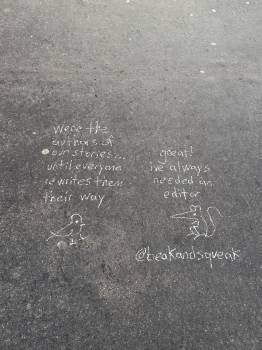 were the
authors of
our stories...
until everyone
rewrites them
their way
great!
ive always
needed an
editor
@beakandsqueak